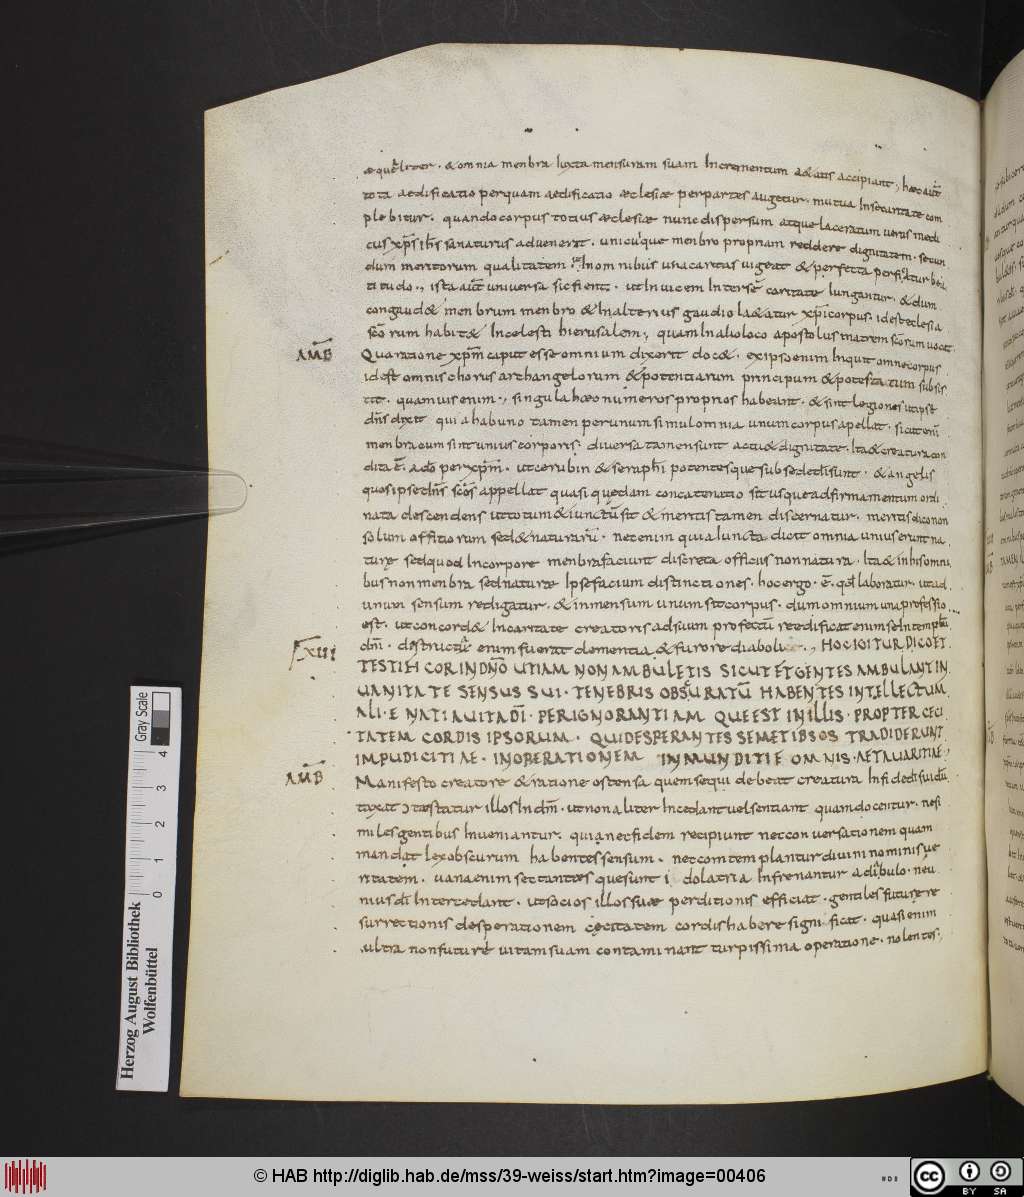 æqualiter · & omnia menbra Iuxta mensuram suam Incrementum aetatis accipiant, hæc aut̄
tota aedificatio perquam aedificatio æclesiæ perpartes augetur · mutua Insecuritate com
plebitur · quandocorpus totius æclesiæ nunc dispersum atque laceratum uerus medi
cus xp̄s ih̄s sanaturus aduenerit · unicuique menbro propriam reddere dignitatem · secun
dum meritorum qualitatem · Inomnibus unacaritas uigeat & perfecta
titudo ·, ista aut̄ uniuersa sic fient · ut Inuicem Interse caritate Iungantur · & dum
congaud& menbrum menbro & Inalterius gaudio la&atur xp̄i corpus · idest eclesia
sc̄orum habit& Incelesti hierusalem ; quam Inalioloco apostolus matrem sc̄orum uocat
AMB̄
Quaratione xp̄m caput esse omnium dixerit doc& · exipso enim Inquit omne corpus
idest omnis chorus archangelorum & potentiarum principum & potestatum subsis
tit · quamuis enim ·, singula hæc numeros proprios habeant · & sint legiones ut ipse
dn̄s dixit qui ahabuno tamen perunum simul omnia unum corpus apellat · sicut enī
menbra cum sint unius corporis · diuersa tamen sunt actu & dignitate · Ita & creatura con
dita ē · ado perxp̄m · ut cerubin & seraphī potentes que sub sede dī sunt · & angelis
quos ipse dn̄s sc̄os appellat quasi quędam concatenatio sit usque ad firmamentum ordi
nata descendens ut totum & iunctū sit & meritis tamen discernatur · meritis dico non
solum offitiorum sed & naturarū · nec enim quia Iuncta dicit omnia unius erunt na
turę sed quod Incorpore menbra faciunt discreta officiis non natura · Ita & in his omni
bus non menbra sed naturæ Ipse facium distinctiones · hoc ergo · ē · qd̄ laboratur · ut ad
unum sensum redigatur · & in mensum unum sit corpus · dum omnium una professio
est · ut concord& Incaritate creatoris adsuum profectū reedificat enim se In templū
dn̄i · destructū enim fuerat clementia & furore diaboli ·, HOC IGITUR DICO ET
XIII
TESTIFI COR IN DN̄O UTIAM NON AMBULETIS SICUT ET GENTES AMBULANT IN
UANITATE SENSUS SUI · TENEBRIS OBSCURATŪ HABENTES INTELLECTUM
ALI·E NATI A UITA DĪ · PER IGNORANTIAM QUE EST IN ILLIS · PROPTER CECI
TATEM CORDIS IPSORUM · QUI DESPERANTES SEMETIBSOS TRADIDERUNT
IMPUDICITIAE · IN OBERATIONEM INMUNDITIE OMNIS · AET AUARITIAE,
AMB̄
Manifesto creatore & ratione ostensa quem sequi debeat creatura
tæstatur illos In dn̄o · ut non aliter Incedant uel sentiant quam docentur · nesi
miles gentibus Inueniantur · quia nec fidem recipiunt nec conuersationem quam
mandat lex obscurum habentes sensum · nec comtemplantur diuini nominis ue
ritatem · uana enim sectantes que sunt idolatria Infrenantur a diabulo · neu
nius dī Intercedant · ut socios illos suæ perditionis efficiat · gentiles futuræ re
surrectionis desperationem cęcitatem cordis habere significat · quasi enim
ultra non futurę uitam suam contaminant turpissima operatione · nolentes,
Herzog August Bibliothek
Wolfenbüttel
0 1 2 3 4
Gray Scale
© HAB http://diglib.hab.de/mss/39-weiss/start.htm?image=00406
cc BY SA